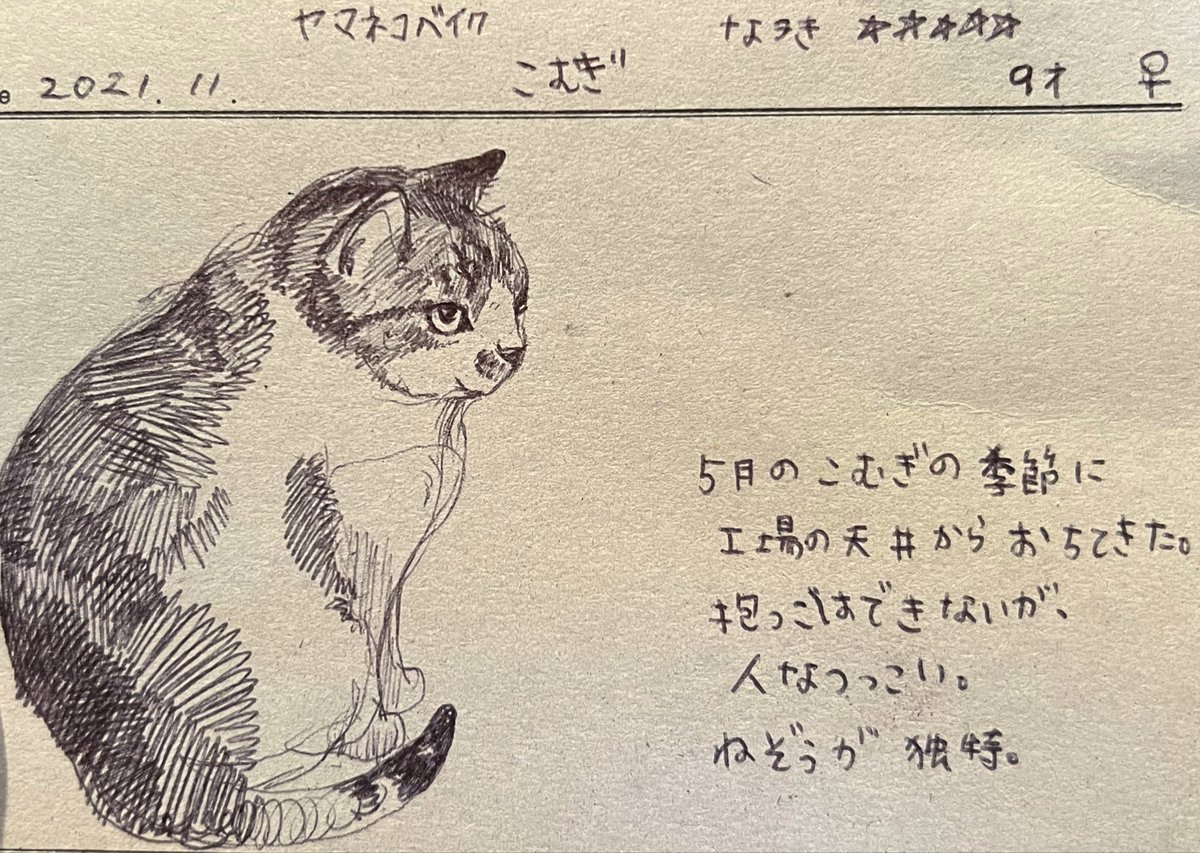 ヤマネコベイク なつき ☆☆☆☆☆
e 2021. 11. こむぎ 9才 ♀
5月のこむぎの季節に
工場の天井からおちてきた。
抱っこはできないが、
人なつっこい。
ねぞうが独特。